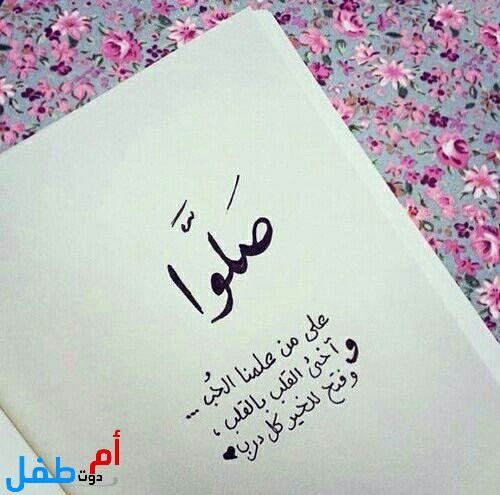 صَلّوا
على من علمنا الحُب ...
و آخىٰ القلب بالقلب ،
و فتح للخير كل درب
أم
دوت
طفل